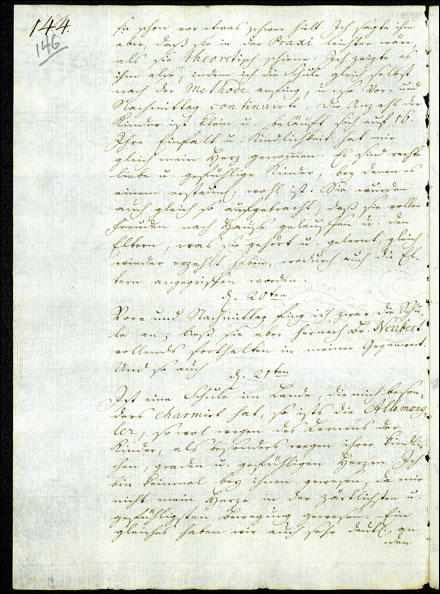 144.
146
sie schon vor etwas schwer hielt. Ich sagte ihm
aber, daß sie in der Praxi leichter wäre
als sie theoretisch schiene. Ich zeigte es
ihm also, indem ich die Schule gleich selbst
nach der Methode anfing, u. so Vor- und
Nachmittag continuirte. Die Anzahl der
Kinder ist klein u. beläuft sich auf 16.
Ihre Einfalt u. Kindlichkeit hat mir
gleich mein Herz genommen. Es sind recht
liebe u. gefühlige Kinder, bey denen es
einem erstaunl. wohl ist. Sie wurden
auch gleich so aufgebracht, daß sie voller
Freuden nach Hause gelauffen u. den
Eltern, was sie gehört u. gelernt, gleich
wieder erzehlt haben, wodurch auch die El-
tern angegriffen worden.
d. 20ten
Vor- und Nachmittag fing ich zwar die Schu-
le an; ließ sie aber hernach Br. Neubert
vollends forthalten in meiner Gegenwart.
Und so auch
d. 21ten
Ist eine Schule im Lande, die mich beson-
ders charmirt hat, so ists die Allemäng-
ler, sowol wegen des Lernens der
Kinder, als besonders wegen ihrer kindli-
chen, graden u. gefühligen Herzen. Ich
bin keinmal bey ihnen gewesen, da mir
nicht mein Herze in der zärtlichsten u.
gefühligsten Bewegung gewesen. Ein
gleiches haben wir auch sehr deutl. an
den